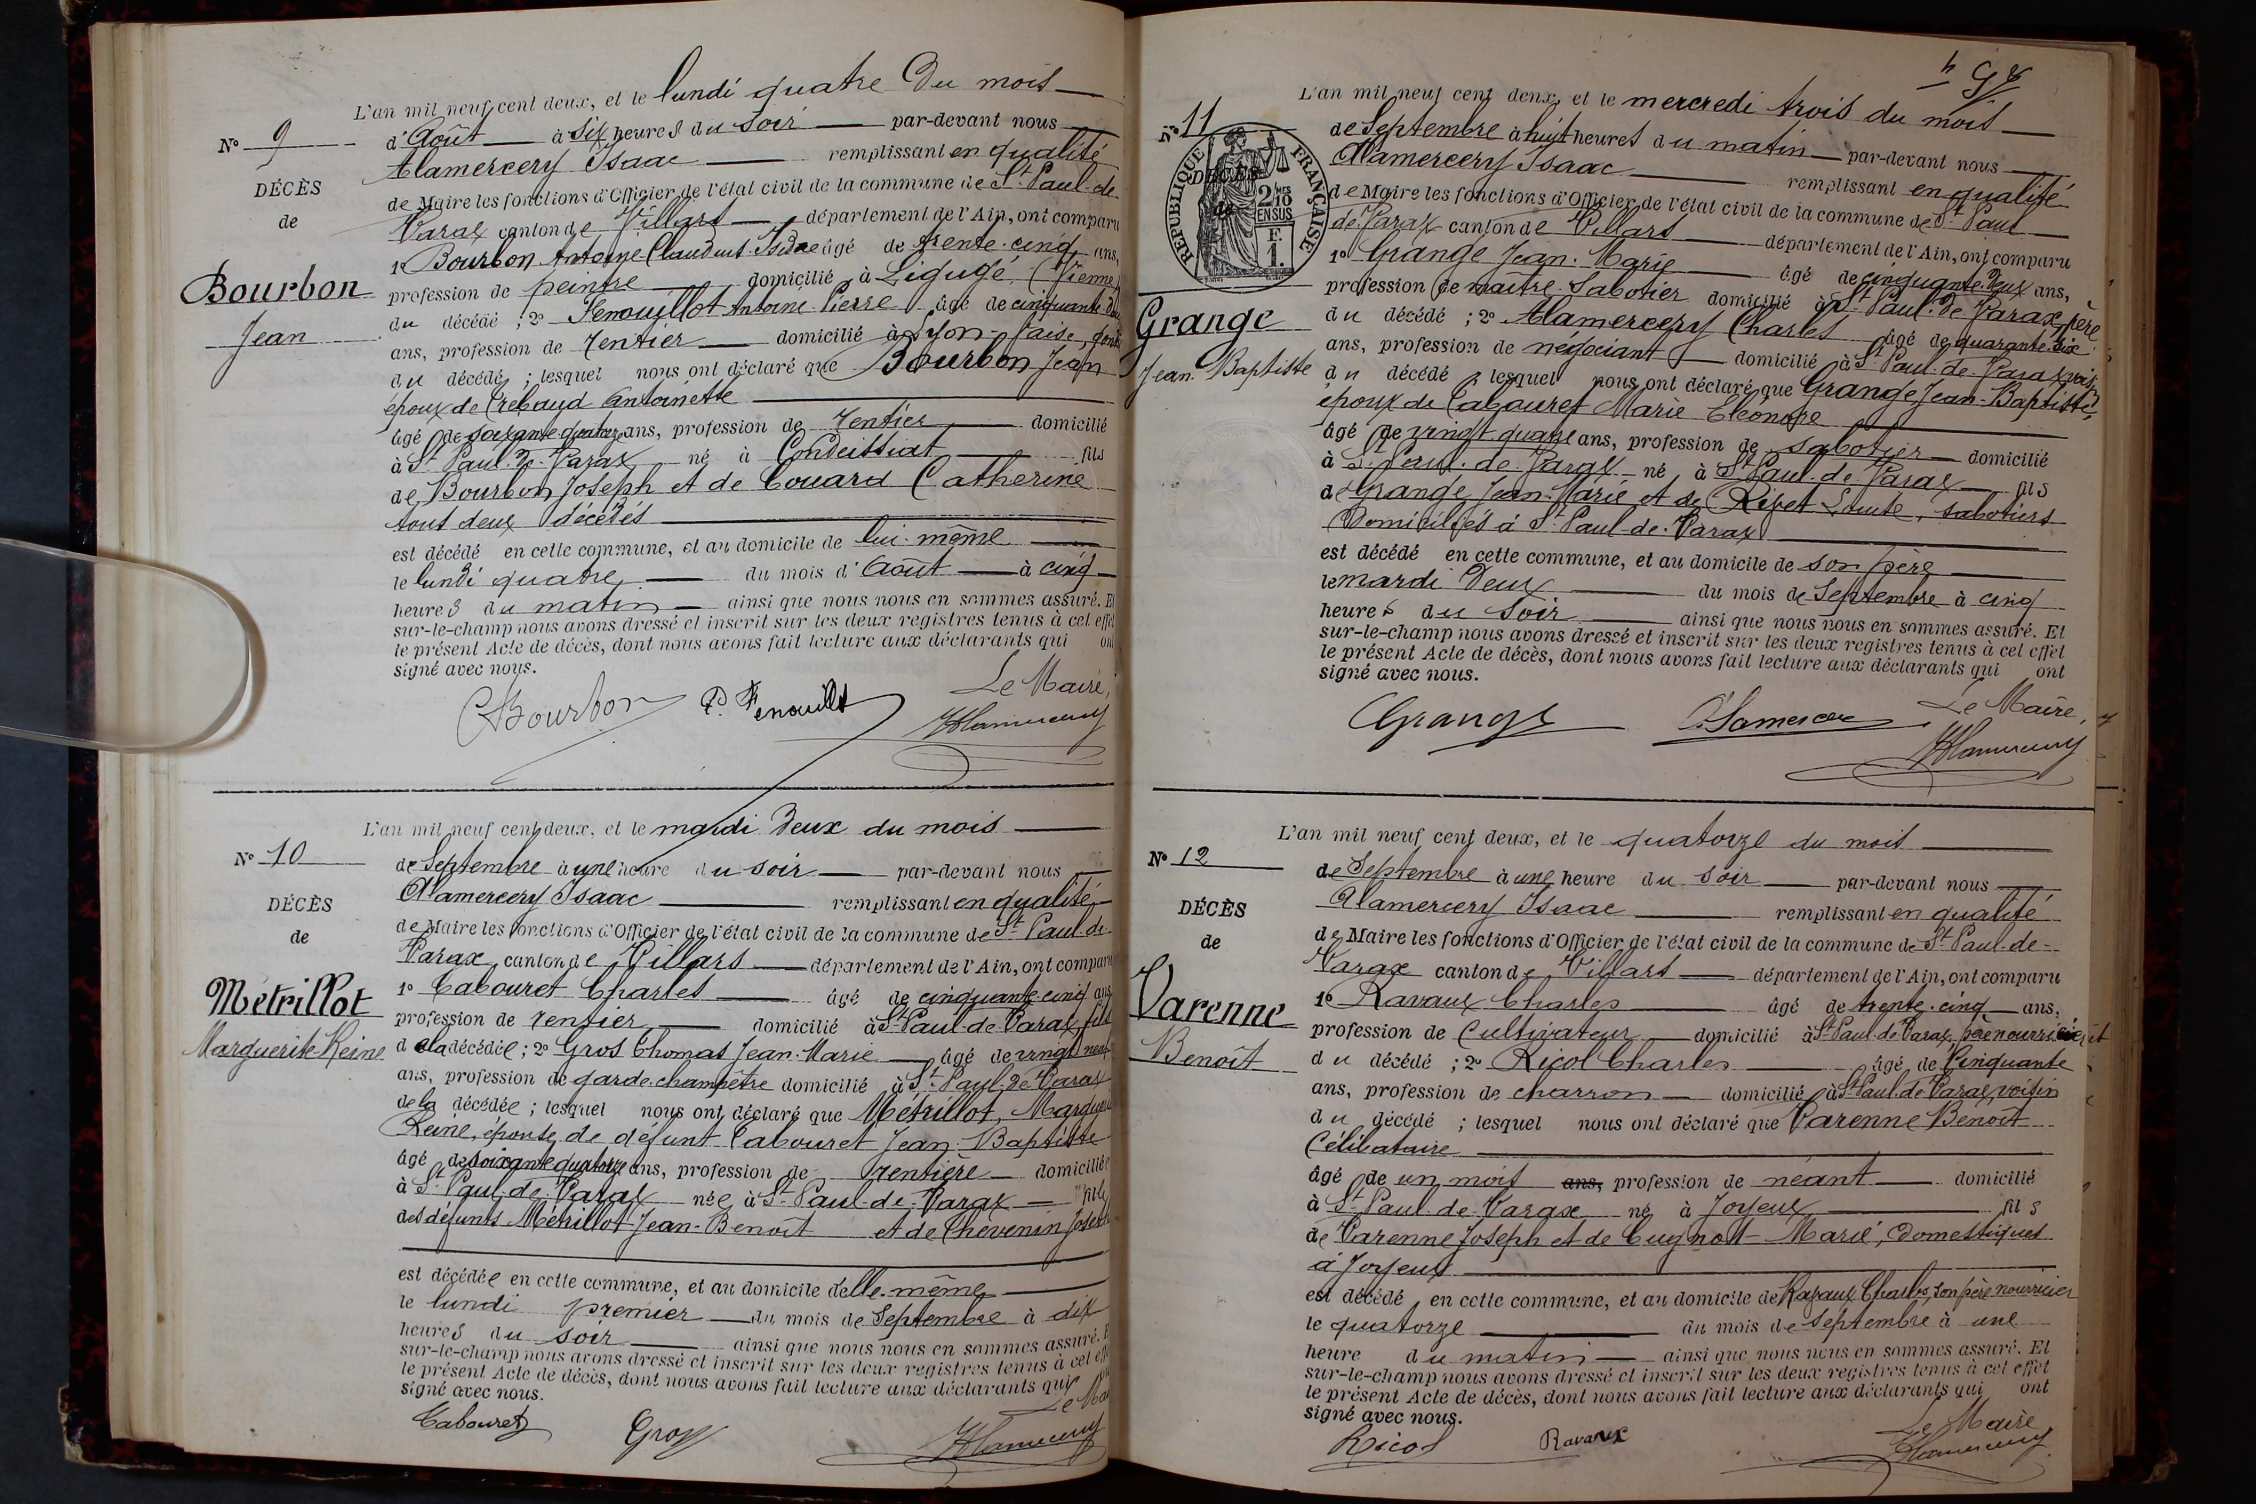 L'an mil neuf cent deux, et le lundi quatre du mois
No 9
d'Août à six heures du soir par-devant nous
Alamercery Isaac remplissant en qualité
DÉCÈS
de Maire les fonctions d'Officier de l'état civil de la commune de St Paul-de-
de
Varax canton de Villars département de l'Ain, ont comparu
1o Bourbon Antoine Claudius Isidore âgé de trente-cinq ans,
Bourbon
profession de peintre domicilié à Ligugé (Vienne)
Jean
du décédé ; 2o Fenouillot Antoine Pierre âgé de cinquante
ans, profession de rentier domicilié à Lyon-Vaise,
du décédé ; lesquel nous ont déclaré que Bourbon Jean
époux de Crebaud Antoinette
âgé de soixante quatorze ans, profession de rentier domicilié
à St Paul-de-Varax né à Condeissiat fils
de Bourbon Joseph et de Couard Catherine
tout deux décédés
est décédé en cette commune, et au domicile de lui-même
le lundi quatre du mois d'Août à cinq
heures du matin ainsi que nous nous en sommes assuré. Et
sur-le-champ nous avons dressé et inscrit sur les deux registres tenus à cet effet
le présent Acte de décès, dont nous avons fait lecture aux déclarants qui ont
signé avec nous.
Le Maire,
CBourbon P. Fenouillot IAlamercery
L'an mil neuf cent deux, et le mardi deux du mois
No 10
de Septembre à une heure du soir par-devant nous
Alamercery Isaac remplissant en qualité
DÉCÈS
de Maire les fonctions d'Officier de l'état civil de la commune de St Paul-de-
de
Varax canton de Villars département de l'Ain, ont comparu
Métrillot
1o Cabouret Charles âgé de cinquante-cinq ans
profession de rentier domicilié à St Paul-de-Varax fils
Marguerite Reine
de la décédée ; 2o Gros Thomas Jean-Marie âgé de vingt neuf
ans, profession de garde-champêtre domicilié à St Paul-de-Varax
de la décédée ; lesquel nous ont déclaré que Métrillot Marguerite
Reine, épouse de défunt Cabouret Jean-Baptiste
âgé de soixante quatorze ans, profession de rentière domiciliée
à St Paul-de-Varax née à St Paul-de-Varax fille
des défunts Métrillot Jean-Benoît et de Thévenin
est décédée en cette commune, et au domicile d'elle-même
le lundi premier du mois de Septembre à dix
heures du soir ainsi que nous nous en sommes assuré.
sur-le-champ nous avons dressé et inscrit sur les deux registres tenus à cet
le présent Acte de décès, dont nous avons fait lecture aux déclarants qui
signé avec nous.
Le Maire
Cabouret Gros IAlamercery
L'an mil neuf cent deux, et le mercredi trois du mois
No 11
de Septembre à huit heures du matin par-devant nous
Alamercery Isaac remplissant en qualité
RÉPUBLIQUE FRANÇAISE
DÉCÈS
2/10 EN SUS
F. 1.
de
de Maire les fonctions d'Officier de l'état civil de la commune de St Paul
de-Varax canton de Villars département de l'Ain, ont comparu
1o Grange Jean-Marie âgé de cinquante-deux ans,
profession de maître-sabotier domicilié à St Paul-de-Varax, père
Grange
du décédé ; 2o Alamercery Charles âgé de quarante-six
Jean-Baptiste
ans, profession de négociant domicilié à St Paul-de-Varax, voisin
du décédé ; lesquel nous ont déclaré que Grange Jean-Baptiste,
époux de Cabouret Marie Eléonore
âgé de vingt quatre ans, profession de sabotier domicilié
à St Paul-de-Varax né à St Paul-de-Varax fils
de Grange Jean-Marie et de Rivet Louise, sabotiers
domiciliés à St Paul-de-Varax
est décédé en cette commune, et au domicile de son père
le mardi deux du mois de Septembre à cinq
heures du soir ainsi que nous nous en sommes assuré. Et
sur-le-champ nous avons dressé et inscrit sur les deux registres tenus à cet effet
le présent Acte de décès, dont nous avons fait lecture aux déclarants qui ont
signé avec nous.
Le Maire,
Grange C. Alamercery IAlamercery
L'an mil neuf cent deux, et le quatorze du mois
No 12
de Septembre à une heure du soir par-devant nous
Alamercery Isaac remplissant en qualité
DÉCÈS
de Maire les fonctions d'Officier de l'état civil de la commune de St Paul-de-
de
Varax canton de Villars département de l'Ain, ont comparu
Varenne
1o Ravaux Charles âgé de trente-cinq ans,
profession de cultivateur domicilié à St Paul-de-Varax, père nourricier
Benoît
du décédé ; 2o Ricol Charles âgé de Cinquante
ans, profession de charron domicilié à St Paul-de-Varax, voisin
du décédé ; lesquel nous ont déclaré que Varenne Benoît
Célibataire
âgé de un mois ans, profession de néant domicilié
à St Paul-de-Varax né à Joyeux fils
de Varenne Joseph et de Cugnott Marie, domestiques
à Joyeux
est décédé en cette commune, et au domicile de Ravaux Charles, son père nourricier
le quatorze du mois de Septembre à une
heure du matin ainsi que nous nous en sommes assuré. Et
sur-le-champ nous avons dressé et inscrit sur les deux registres tenus à cet effet
le présent Acte de décès, dont nous avons fait lecture aux déclarants qui ont
signé avec nous.
Le Maire
Ricol Ravaux IAlamercery